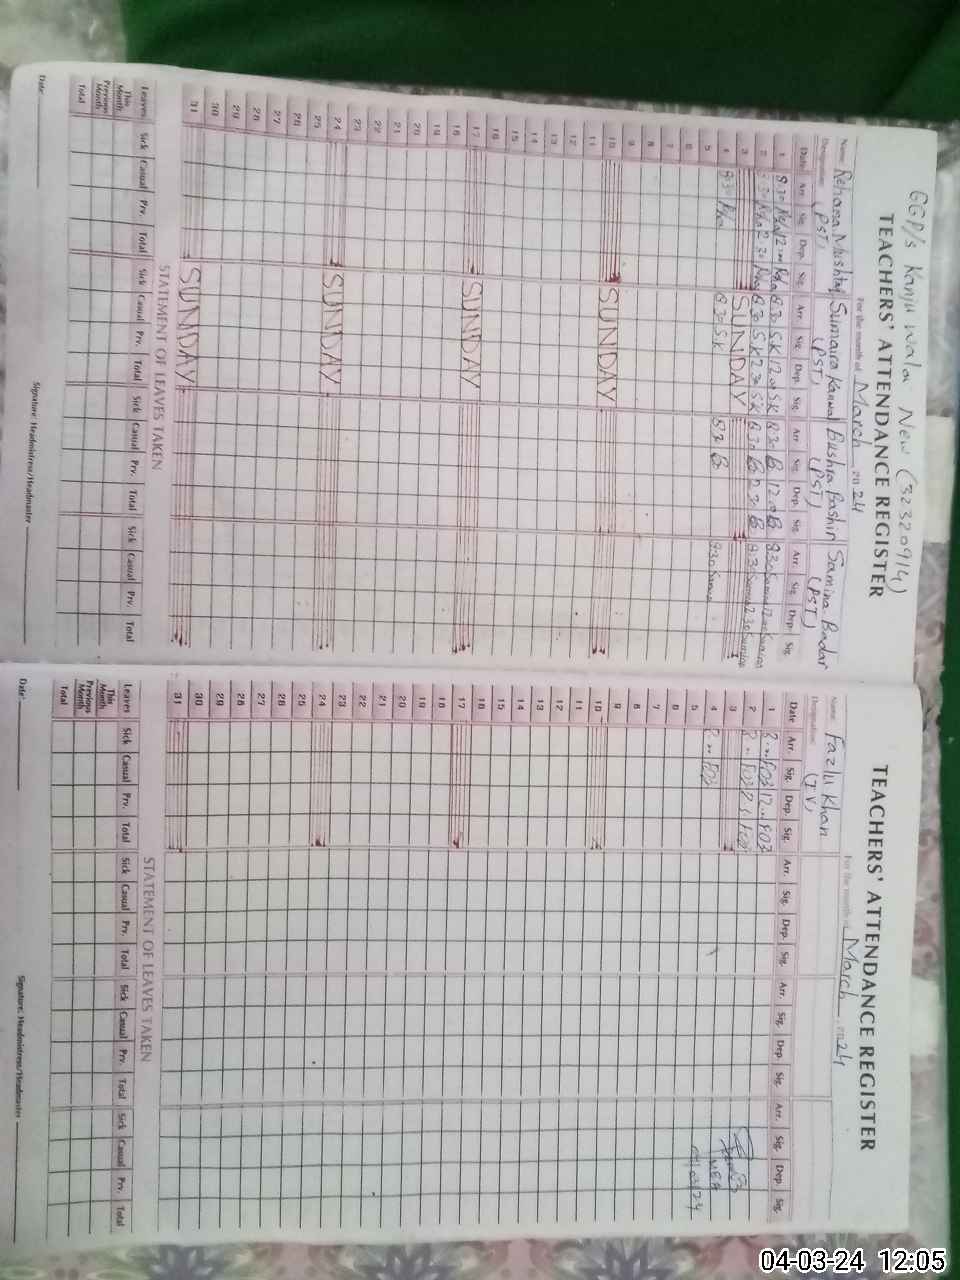 GGP/s Kanju Wala New (32320914)
TEACHERS' ATTENDANCE REGISTER
For the month of March 2024
Name Rehana Mushtaq Sumaira Kanwal Bushra Bashir Samina Badar
Designation (PST) (PST) (PST) (PST)
Date Arr. Sig. Dep. Sig. Arr. Sig. Dep. Sig. Arr. Sig. Dep. Sig. Arr. Sig. Dep. Sig.
1 8.30 12.00 8.30 S.K 12.00 S.K 8.30 B 12.00 B 8.30 Samina 12.00 Samina
2 8.30 2.30 8.30 S.K 2.30 S.K 8.30 B 2.30 B 8.30 Samina 2.30 Samina
3 SUNDAY
4 8.30 8.30 S.K 8.30 B 8.30 Samina
5
6
7
8
9
10 SUNDAY
11
12
13
14
15
16
17 SUNDAY
18
19
20
21
22
23
24 SUNDAY
25
26
27
28
29
30
31 SUNDAY
STATEMENT OF LEAVES TAKEN
Leaves Sick Casual Prv. Total Sick Casual Prv. Total Sick Casual Prv. Total Sick Casual Prv. Total
This Month
Previous Month
Total
Date Signature: Headmistress/Headmaster
TEACHERS' ATTENDANCE REGISTER
For the month of March 2024
Name Fazlu Khan
Designation
Date Arr. Sig. Dep. Sig. Arr. Sig. Dep. Sig. Arr. Sig. Dep. Sig. Arr. Sig. Dep. Sig.
1
2
3
4
5
6
7
8
9
10
11
12
13
14
15
16
17
18
19
20
21
22
23
24
25
26
27
28
29
30
31
MEA
04/03/24
STATEMENT OF LEAVES TAKEN
Leaves Sick Casual Prv. Total Sick Casual Prv. Total Sick Casual Prv. Total Sick Casual Prv. Total
This Month
Previous Month
Total
Date Signature: Headmistress/Headmaster
04-03-24 12:05